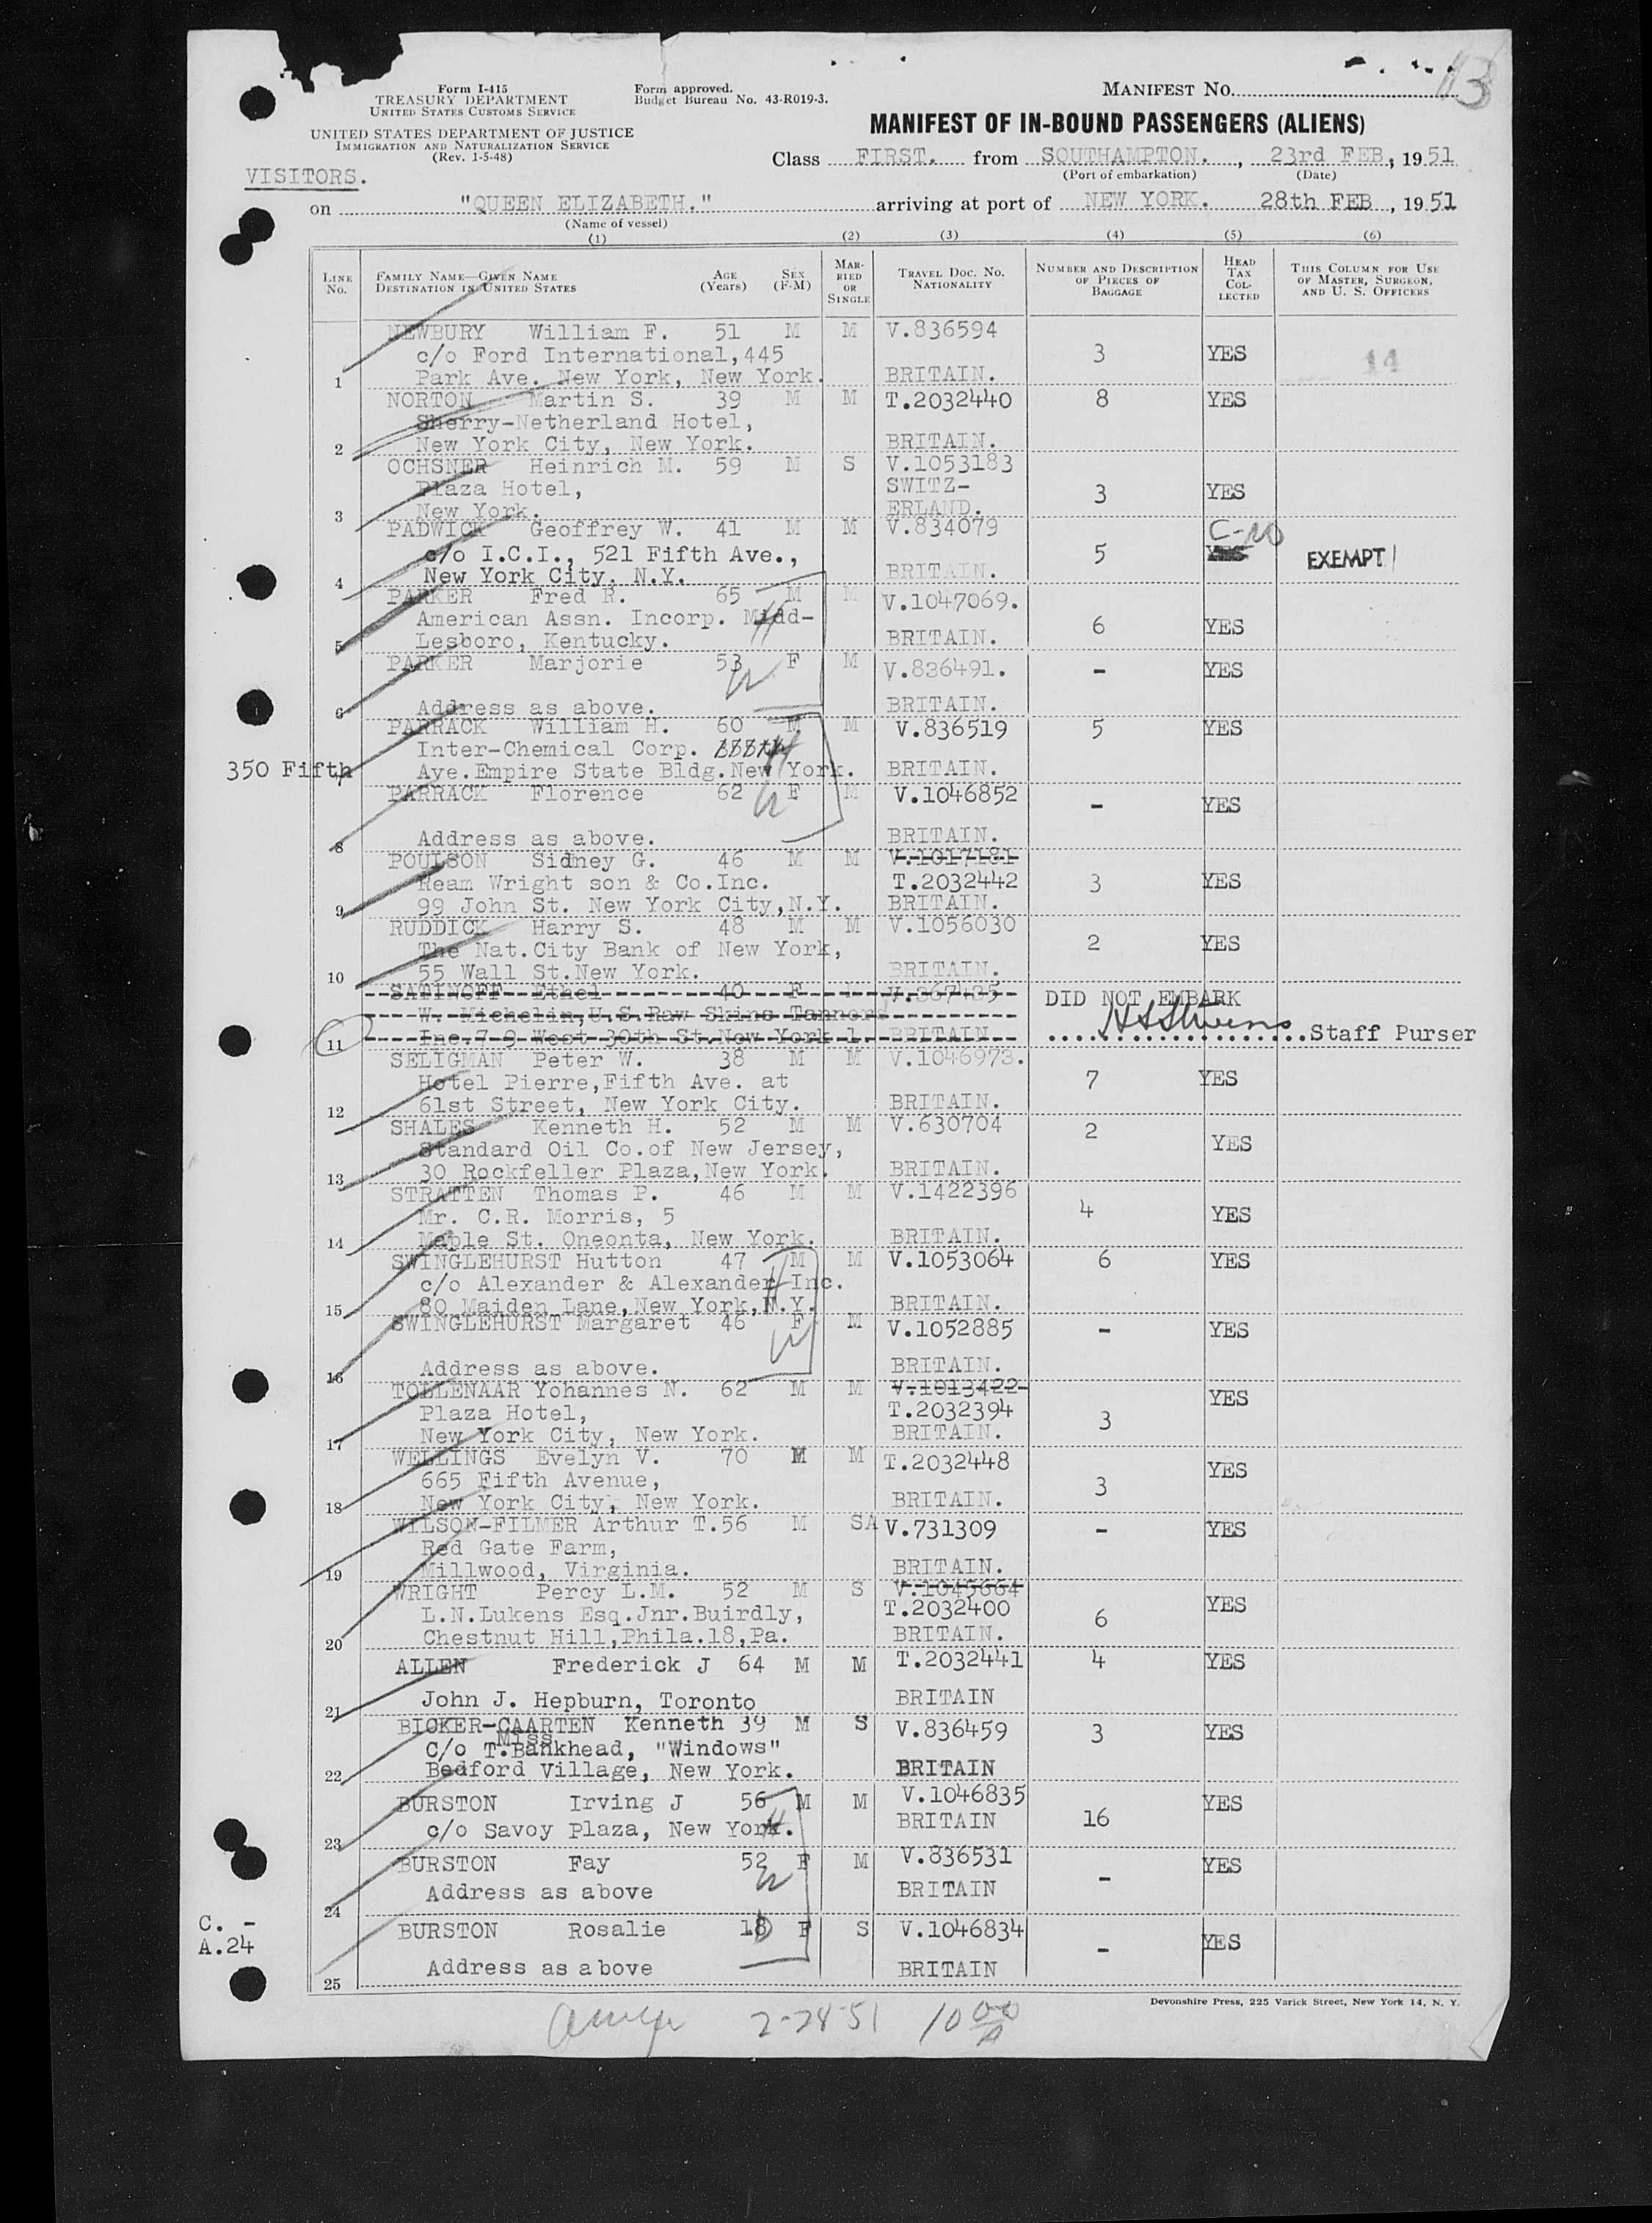 13
Form I-415
TREASURY DEPARTMENT
UNITED STATES CUSTOMS SERVICE
UNITED STATES DEPARTMENT OF JUSTICE
IMMIGRATION AND NATURALIZATION SERVICE
(Rev. 1-5-48)
Form approved.
Budget Bureau No. 43-R019-3.
MANIFEST NO.
MANIFEST OF IN-BOUND PASSENGERS (ALIENS)
Class FIRST. from SOUTHAMPTON. , 23rd FEB, 1951
(Port of embarkation) (Date)
VISITORS.
on "QUEEN ELIZABETH." arriving at port of NEW YORK. 28th FEB , 1951
(Name of vessel)
(1) (2) (3) (4) (5) (6)
LINE No. FAMILY NAME—GIVEN NAME DESTINATION IN UNITED STATES AGE (Years) SEX (F-M) MARRIED OR SINGLE TRAVEL DOC. NO. NATIONALITY NUMBER AND DESCRIPTION OF PIECES OF BAGGAGE HEAD TAX COLLECTED THIS COLUMN FOR USE OF MASTER, SURGEON, AND U. S. OFFICERS
NEWBURY William F. 51 M M V.836594
c/o Ford International,445 3 YES 14
1 Park Ave. New York, New York. BRITAIN.
NORTON Martin S. 39 M M T.2032440 8 YES
Sherry-Netherland Hotel,
2 New York City, New York. BRITAIN.
OCHSNER Heinrich M. 59 M S V.1053183
Plaza Hotel, SWITZ- 3 YES
3 New York. ERLAND.
PADWICK Geoffrey W. 41 M M V.834079 C-10
c/o I.C.I., 521 Fifth Ave., 5 YES EXEMPT
4 New York City, N.Y. BRITAIN.
PARKER Fred R. 65 M M V.1047069.
American Assn. Incorp. Midd- H 6 YES
5 Lesboro, Kentucky. BRITAIN.
PARKER Marjorie 53 F M V.836491. - YES
W
6 Address as above. BRITAIN.
PARRACK William H. 60 M M V.836519 5 YES
Inter-Chemical Corp. H
350 Fifth 7 Ave.Empire State Bldg.New York. BRITAIN.
PARRACK Florence 62 F M V.1046852 - YES
W
8 Address as above. BRITAIN.
POULSON Sidney G. 46 M M V.1017181
Ream Wright son & Co.Inc. T.2032442 3 YES
9 99 John St. New York City,N.Y. BRITAIN.
RUDDICK Harry S. 48 M M V.1056030
The Nat.City Bank of New York, 2 YES
10 55 Wall St.New York. BRITAIN.
SATINOFF Ethel 40 F V.367435 DID NOT EMBARK
W. Michelin,U.S.Raw Skins Tanners
11 Inc.7-9 West 30th St.New York 1. BRITAIN Staff Purser
SELIGMAN Peter W. 38 M M V.1046973.
Hotel Pierre,Fifth Ave. at 7 YES
12 61st Street, New York City. BRITAIN.
SHALES Kenneth H. 52 M M V.630704 2
Standard Oil Co.of New Jersey, YES
13 30 Rockfeller Plaza,New York. BRITAIN.
STRATTEN Thomas P. 46 M M V.1422396
Mr. C.R. Morris, 5 4 YES
14 Maple St. Oneonta, New York. BRITAIN.
SWINGLEHURST Hutton 47 M M V.1053064 6 YES
c/o Alexander & Alexander Inc. H
15 80 Maiden Lane,New York,N.Y. BRITAIN.
SWINGLEHURST Margaret 46 F M V.1052885 - YES
W
16 Address as above. BRITAIN.
TOLLENAAR Yohannes N. 62 M M V.1013422 YES
Plaza Hotel, T.2032394 3
17 New York City, New York. BRITAIN.
WELLINGS Evelyn V. 70 M M T.2032448 YES
665 Fifth Avenue, 3
18 New York City, New York. BRITAIN.
WILSON-FILMER Arthur T.56 M SA V.731309 - YES
Red Gate Farm,
19 Millwood, Virginia. BRITAIN.
WRIGHT Percy L.M. 52 M S V.1045664
L.N.Lukens Esq.Jnr.Buirdly, T.2032400 6 YES
20 Chestnut Hill,Phila.18,Pa. BRITAIN.
ALLEN Frederick J 64 M M T.2032441 4 YES
21 John J. Hepburn, Toronto BRITAIN
BICKER-CAARTEN Kenneth 39 M S V.836459 3 YES
Miss
C/o T.Bankhead, "Windows"
22 Bedford Village, New York. BRITAIN
BURSTON Irving J 56 M M V.1046835 YES
23 c/o Savoy Plaza, New York. H BRITAIN 16
BURSTON Fay 52 F M V.836531 YES
W
24 Address as above BRITAIN -
C. -
A.24
BURSTON Rosalie 18 F S V.1046834 YES
25 Address as above BRITAIN -
Devonshire Press, 225 Varick Street, New York 14, N. Y.
2-28-51 10 00 A